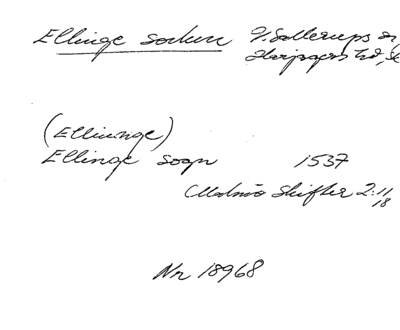 Ellinge socken V. Sallerups sn,
Harjagers hd, Sk
(Elliunge)
Ellinge sogn 1537
Malmö Skifter 2:11/18
Nr 18968